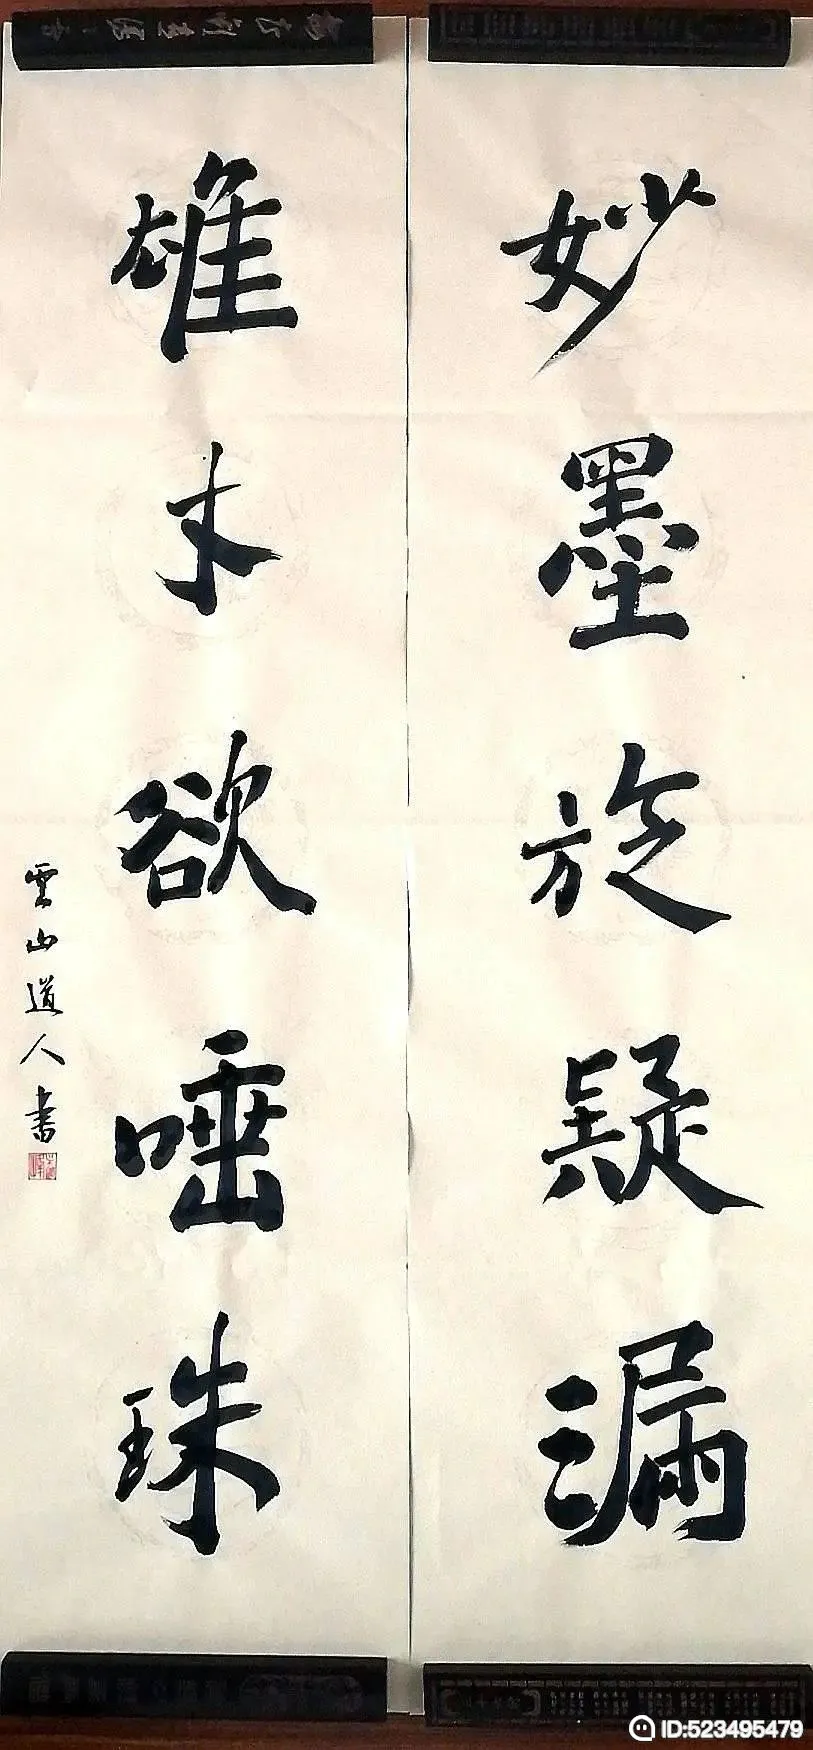 妙墨旋疑漏
雄才欲唾珠
雲山道人書
ID:523495479